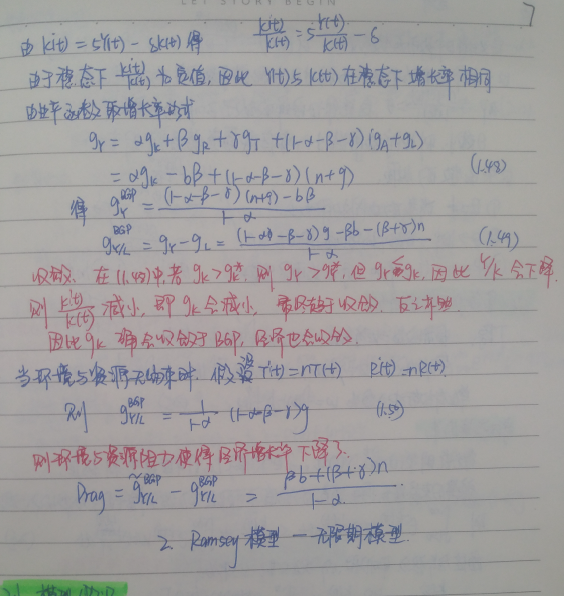 LET STORY BEGIN
7
由 K̇(t) = sY(t) - δK(t) 得 K̇(t)/K(t) = s Y(t)/K(t) - δ
由于稳态下 K̇(t)/K(t) 为定值, 因此 Y(t)与K(t)在稳态下增长率相同
由生产函数取增长率的式
g_Y = αg_K + βg_R + γg_T + (1-α-β-γ)(g_A+g_L)
= αg_K - bβ + (1-α-β-γ)(n+g) (1.48)
得 g_Y^BGP = ((1-α-β-γ)(n+g) - bβ)/(1-α)
g_Y/L^BGP = g_Y - g_L = ((1-α-β-γ)g - βb - (β+γ)n)/(1-α) (1.49)
收敛: 在(1.48)中, 若 g_K > g_K*, 则 g_Y > g_Y*, 但 g_Y g_K, 因此 Y/K 会下降.
则 K̇(t)/K(t) 减小, 即 g_K 会减小, 最终趋于收敛. 反之亦然.
因此 g_K 会收敛于BGP, 经济也会收敛.
当环境与资源无约束时. 假设 Ṫ(t) = nT(t) Ṙ(t) = nR(t).
则 g_Y/L^BGP = 1/(1-α) (1-α-β-γ)g (1.50)
则环境与资源阻力使得经济增长率下降了.
Drag = g̃_Y/L^BGP - g_Y/L^BGP = (βb + (β+γ)n)/(1-α).
2. Ramsey 模型 — 无限期模型
2.1 模型